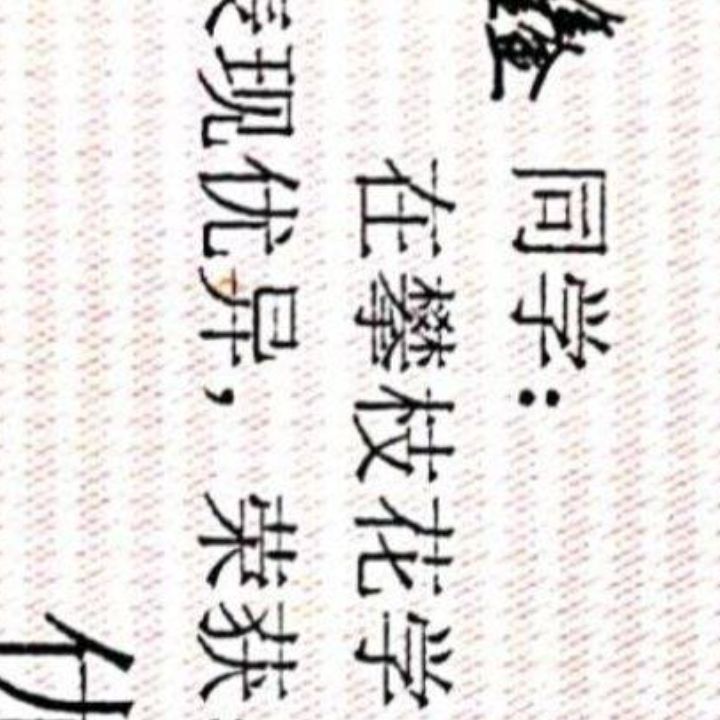 同学：
在攀枝花学
表现优异，荣获
优